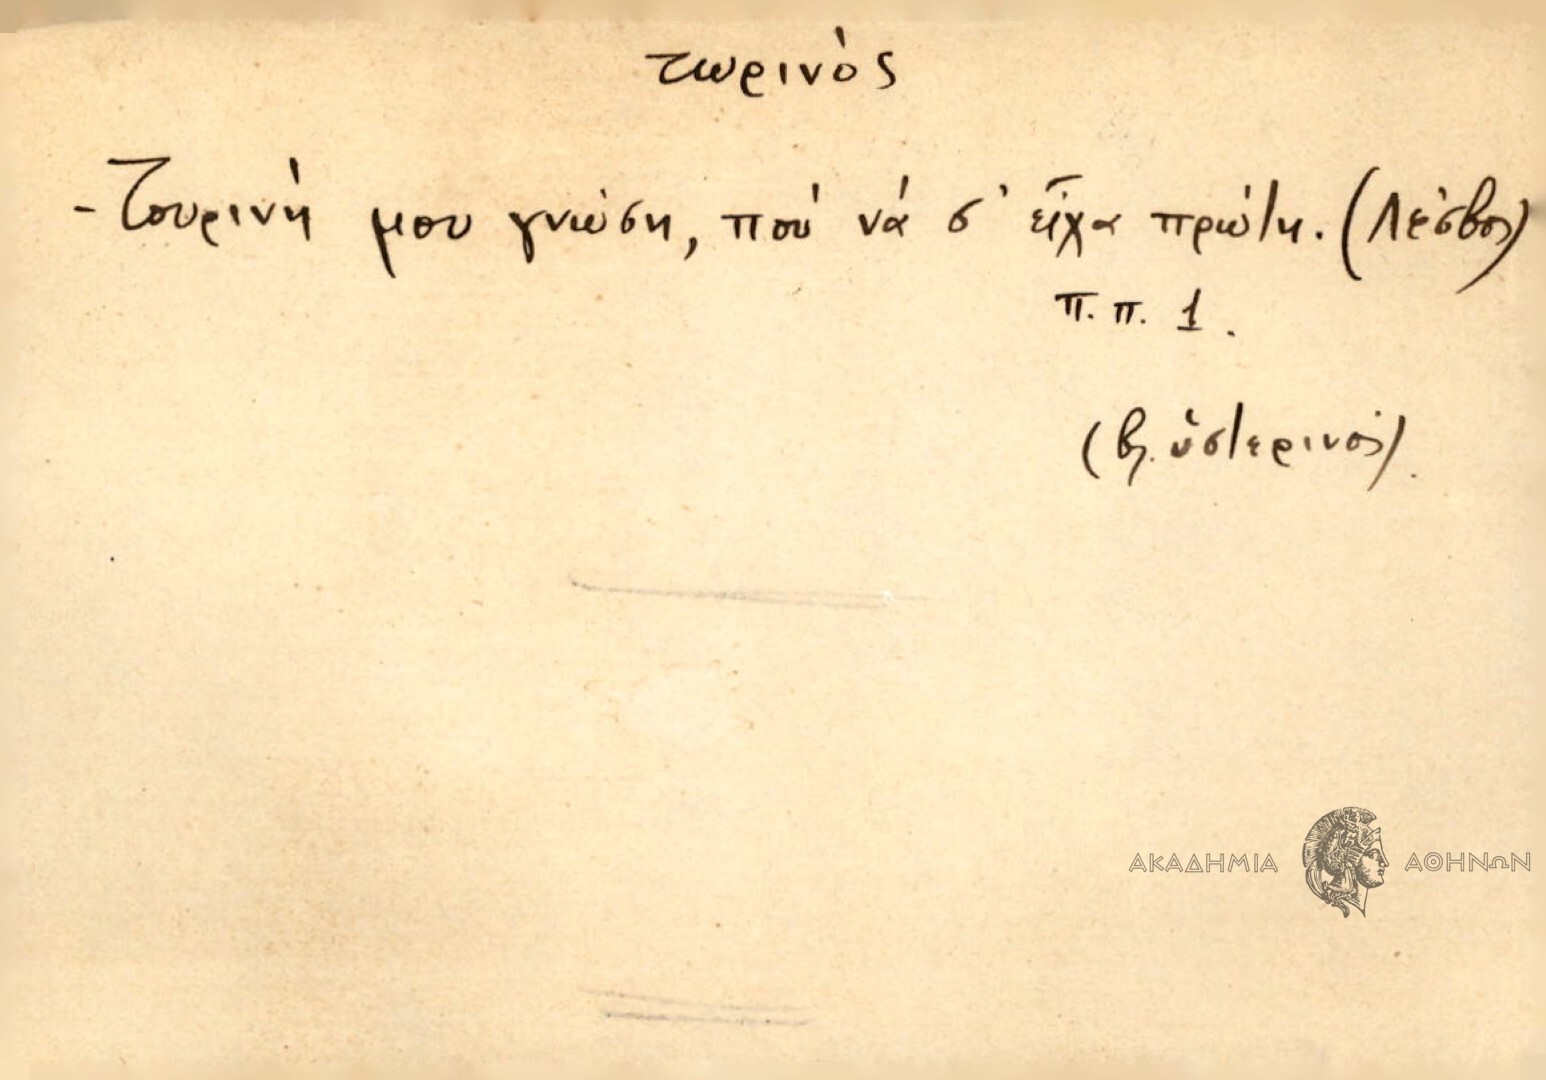 τωρινὸς
- Τουρινή μου γνώση, πού νά σ' εἶχα πρώτη. (Λέσβος)
π. π. 1.
(βλ. ὑστερινός).
ΑΚΑΔΗΜΙΑ ΑΘΗΝΩΝ